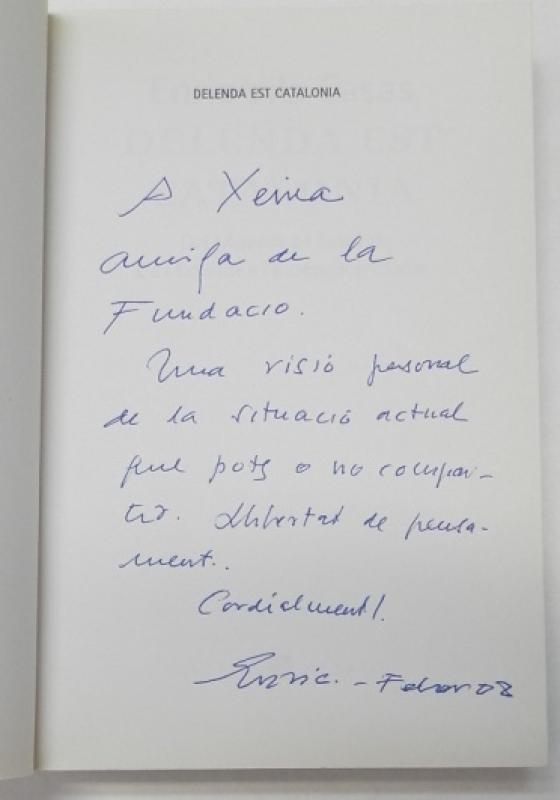 DELENDA EST CATALONIA
A Xeina
amiga de la
Fundacio.
Una visió personal
de la situació actual
que pots o no compar-
tir. Llibertat de pensa-
ment..
Cordialment!.
Enric. - Febrer 08